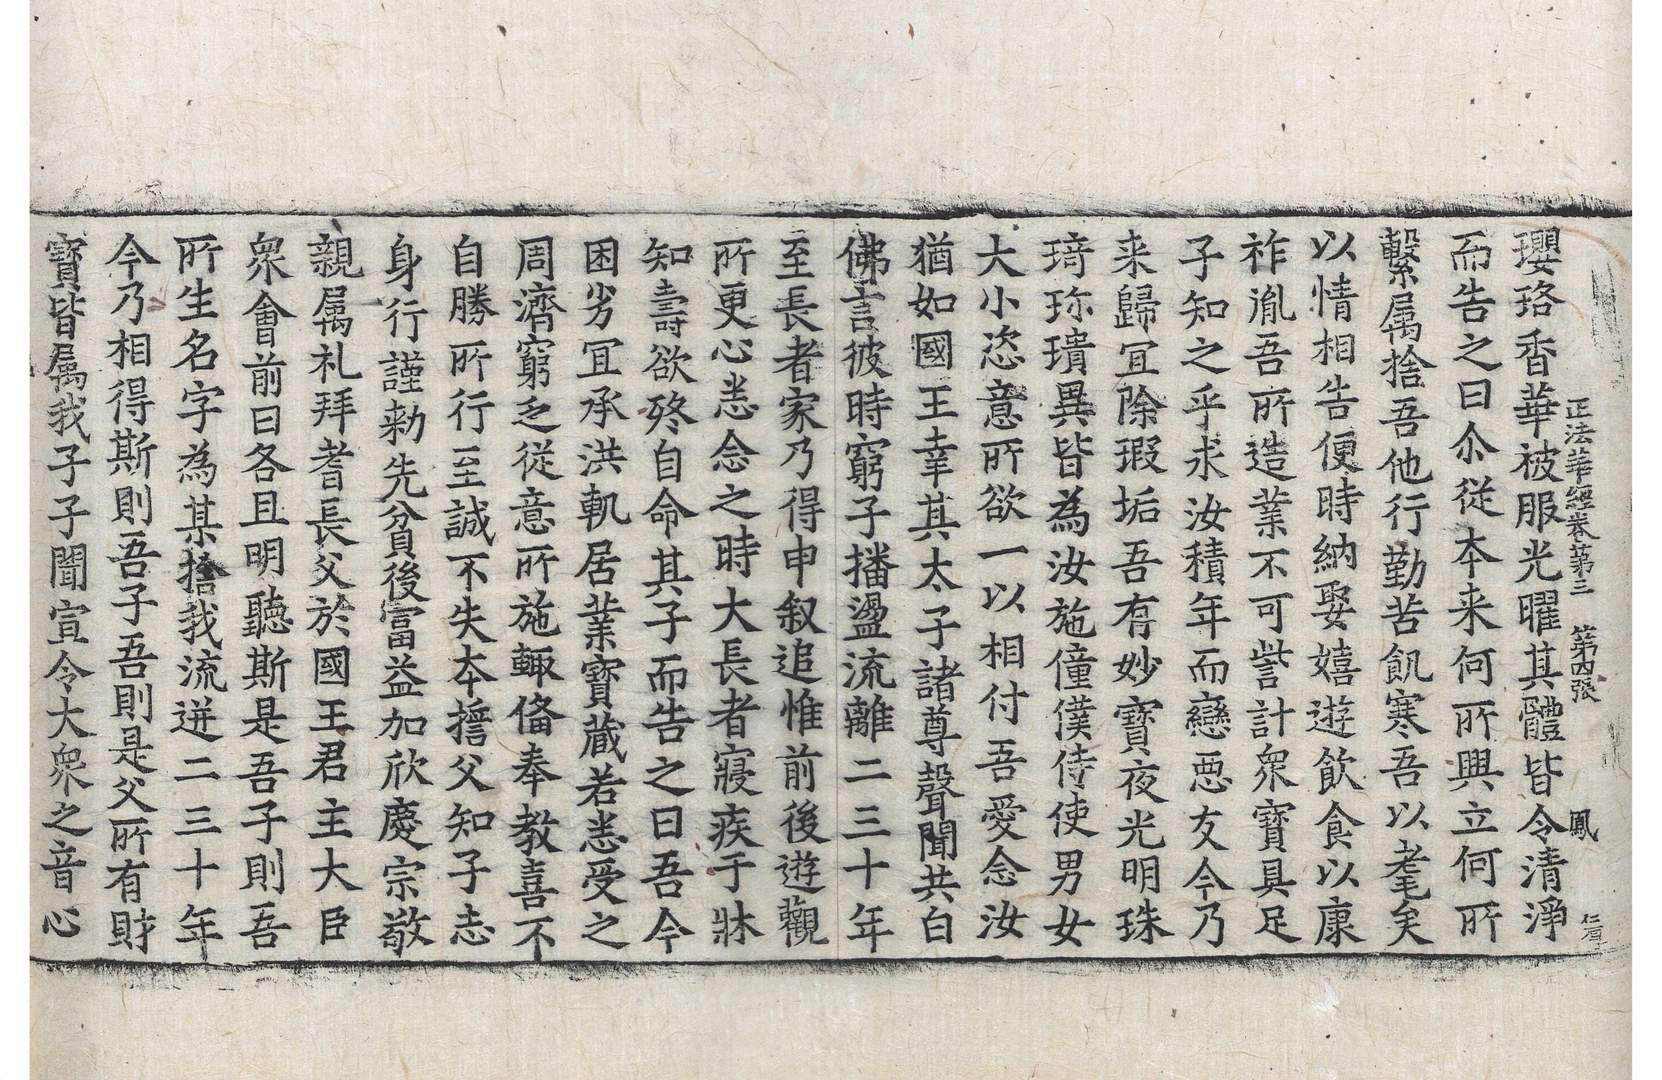 正法華經卷第三 第四張 鳳
瓔珞香華被服光曜其體皆令清淨
而告之曰尒從本来何所興立何所
繫属捨吾他行勤苦飢寒吾以耄矣
以情相告便時納娶嬉遊飲食以康
祚胤吾所造業不可訾計衆寳具足
子知之乎求汝積年而戀惡友今乃
来歸宜除瑕垢吾有妙寳夜光明珠
琦珎瓌異皆為汝施僮僕侍使男女
大小恣意所欲一以相付吾愛念汝
猶如國王幸其太子諸尊聲聞共白
佛言彼時窮子播盪流離二三十年
至長者家乃得申叙追惟前後遊觀
所更心恙念之時大長者寢疾于牀
知壽欲終自命其子而告之曰吾今
困劣宜承洪軌居業寳蔵若悉受之
周濟窮乏從意所施輙俻奉教喜不
自勝所行至誠不失本擔父知子志
身行謹勑先貧後富益加欣慶宗敬
親属礼拜耆長父於國王君主大臣
衆會前曰各且明聽斯是吾子則吾
所生名字為某捨我流迸二三十年
今乃相得斯則吾子吾則是父所有財
寳皆属我子子聞宣令大衆之音心